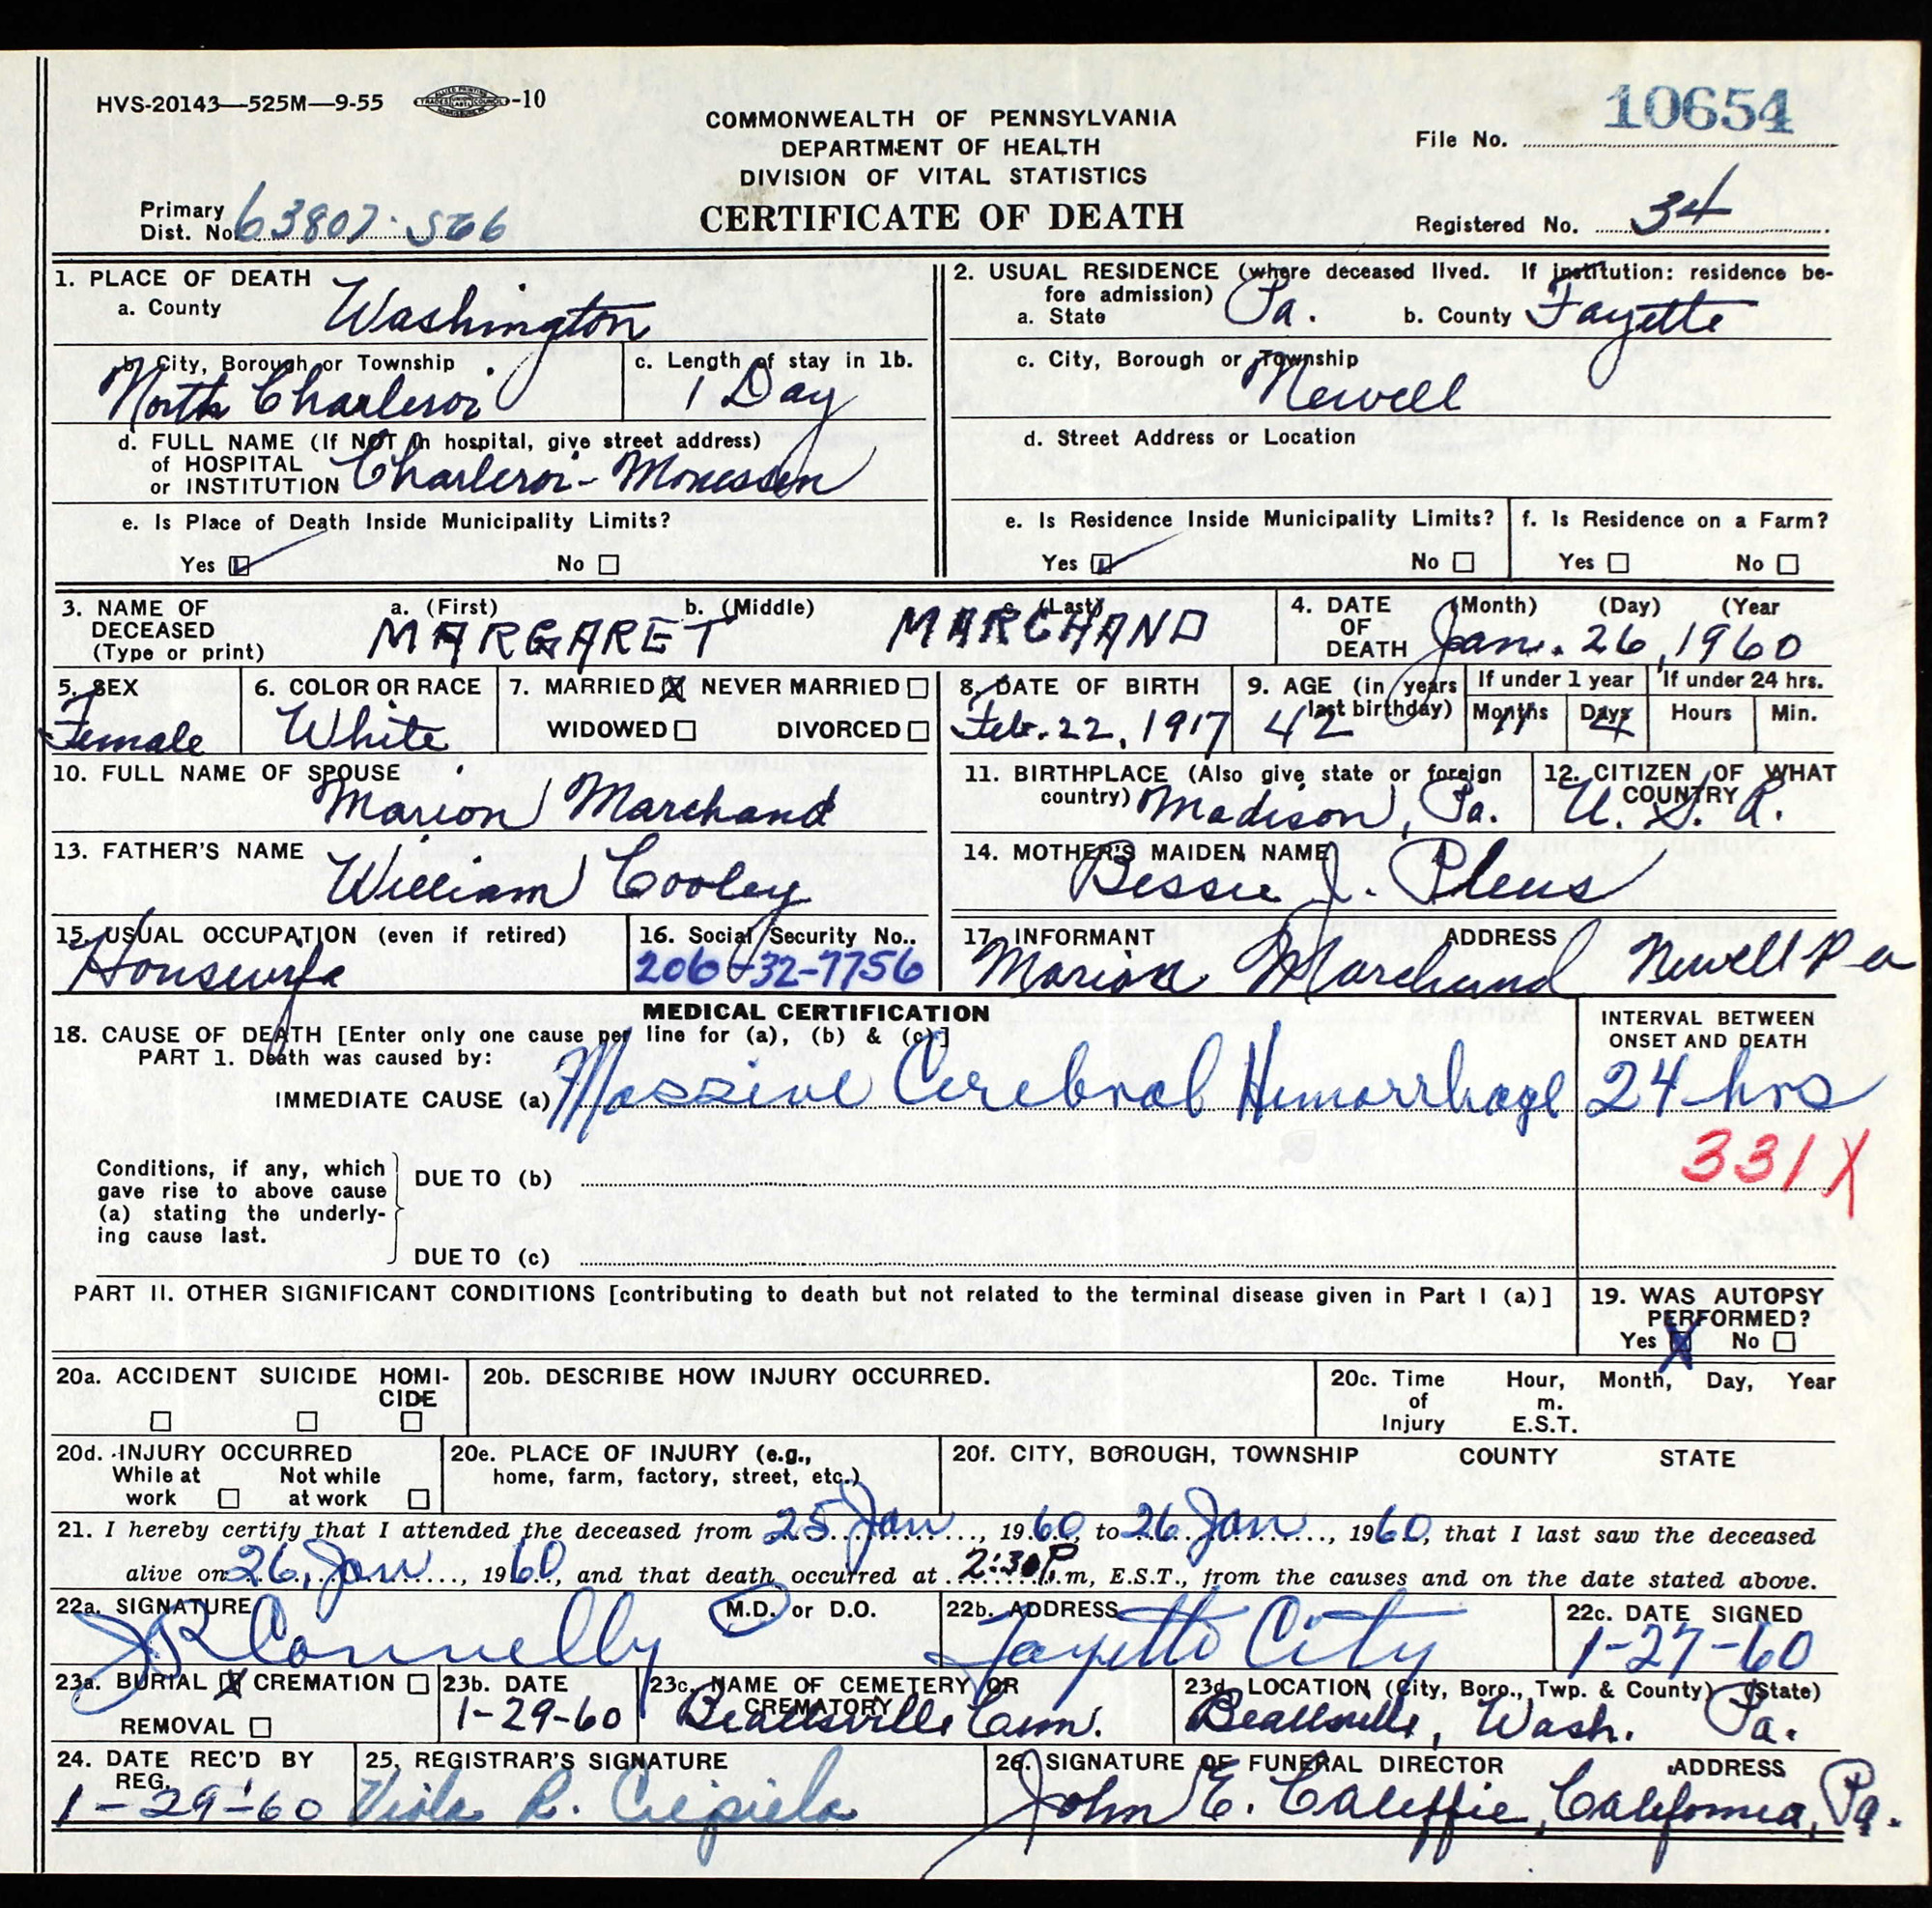 HVS-20143—525M—9-55 -10
10654
COMMONWEALTH OF PENNSYLVANIA
File No.
DEPARTMENT OF HEALTH
DIVISION OF VITAL STATISTICS
Primary Dist. No. 63807-566
CERTIFICATE OF DEATH
Registered No. 34
1. PLACE OF DEATH
a. County Washington
b. City, Borough or Township North Charleroi
c. Length of stay in 1b. 1 Day
d. FULL NAME (If NOT in hospital, give street address)
of HOSPITAL
or INSTITUTION Charleroi-Monessen
e. Is Place of Death Inside Municipality Limits?
Yes No
2. USUAL RESIDENCE (where deceased lived. If institution: residence be-
fore admission)
a. State Pa. b. County Fayette
c. City, Borough or Township
Newell
d. Street Address or Location
e. Is Residence Inside Municipality Limits?
Yes No
f. Is Residence on a Farm?
Yes No
3. NAME OF DECEASED (Type or print)
a. (First) b. (Middle) c. (Last)
MARGARET MARCHAND
4. DATE OF DEATH
(Month) (Day) (Year
Jan. 26, 1960
5. SEX
Female
6. COLOR OR RACE
White
7. MARRIED X NEVER MARRIED
WIDOWED DIVORCED
8. DATE OF BIRTH
Feb. 22, 1917
9. AGE (in years last birthday)
42
If under 1 year
Months 11 Days 4
If under 24 hrs.
Hours Min.
10. FULL NAME OF SPOUSE
Marion Marchand
11. BIRTHPLACE (Also give state or foreign
country) Madison, Pa.
12. CITIZEN OF WHAT
COUNTRY
U. S. A.
13. FATHER'S NAME
William Cooley
14. MOTHER'S MAIDEN NAME
Bessie J. Pleus
15. USUAL OCCUPATION (even if retired)
Housewife
16. Social Security No..
206-32-7756
17. INFORMANT ADDRESS
Marion Marchand Newell Pa
MEDICAL CERTIFICATION
18. CAUSE OF DEATH [Enter only one cause per line for (a), (b) & (c)]
PART 1. Death was caused by:
IMMEDIATE CAUSE (a) Massive Cerebral Hemorrhage
INTERVAL BETWEEN
ONSET AND DEATH
24 hrs
331X
Conditions, if any, which
gave rise to above cause
(a) stating the underly-
ing cause last.
DUE TO (b)
DUE TO (c)
PART II. OTHER SIGNIFICANT CONDITIONS [contributing to death but not related to the terminal disease given in Part I (a)]
19. WAS AUTOPSY
PERFORMED?
Yes X No
20a. ACCIDENT SUICIDE HOMI-
CIDE
20b. DESCRIBE HOW INJURY OCCURRED.
20c. Time of Injury
Hour, Month, Day, Year
m.
E.S.T.
20d. INJURY OCCURRED
While at work Not while at work
20e. PLACE OF INJURY (e.g.,
home, farm, factory, street, etc.)
20f. CITY, BOROUGH, TOWNSHIP COUNTY STATE
21. I hereby certify that I attended the deceased from 25 Jan, 1960 to 26 Jan, 1960, that I last saw the deceased
alive on 26, Jan, 1960, and that death occurred at 2:30P.m, E.S.T., from the causes and on the date stated above.
22a. SIGNATURE M.D. or D.O.
JR Connelly
22b. ADDRESS
Fayette City
22c. DATE SIGNED
1-27-60
23a. BURIAL X CREMATION
REMOVAL
23b. DATE
1-29-60
23c. NAME OF CEMETERY OR
CREMATORY
Beallsville Cem.
23d. LOCATION (City, Boro., Twp. & County) (State)
Beallsville, Wash. Pa.
24. DATE REC'D BY
REG.
1-29-60
25. REGISTRAR'S SIGNATURE
Viola R. Ciepiela
26. SIGNATURE OF FUNERAL DIRECTOR ADDRESS
John E. Caleffie, California, Pa.